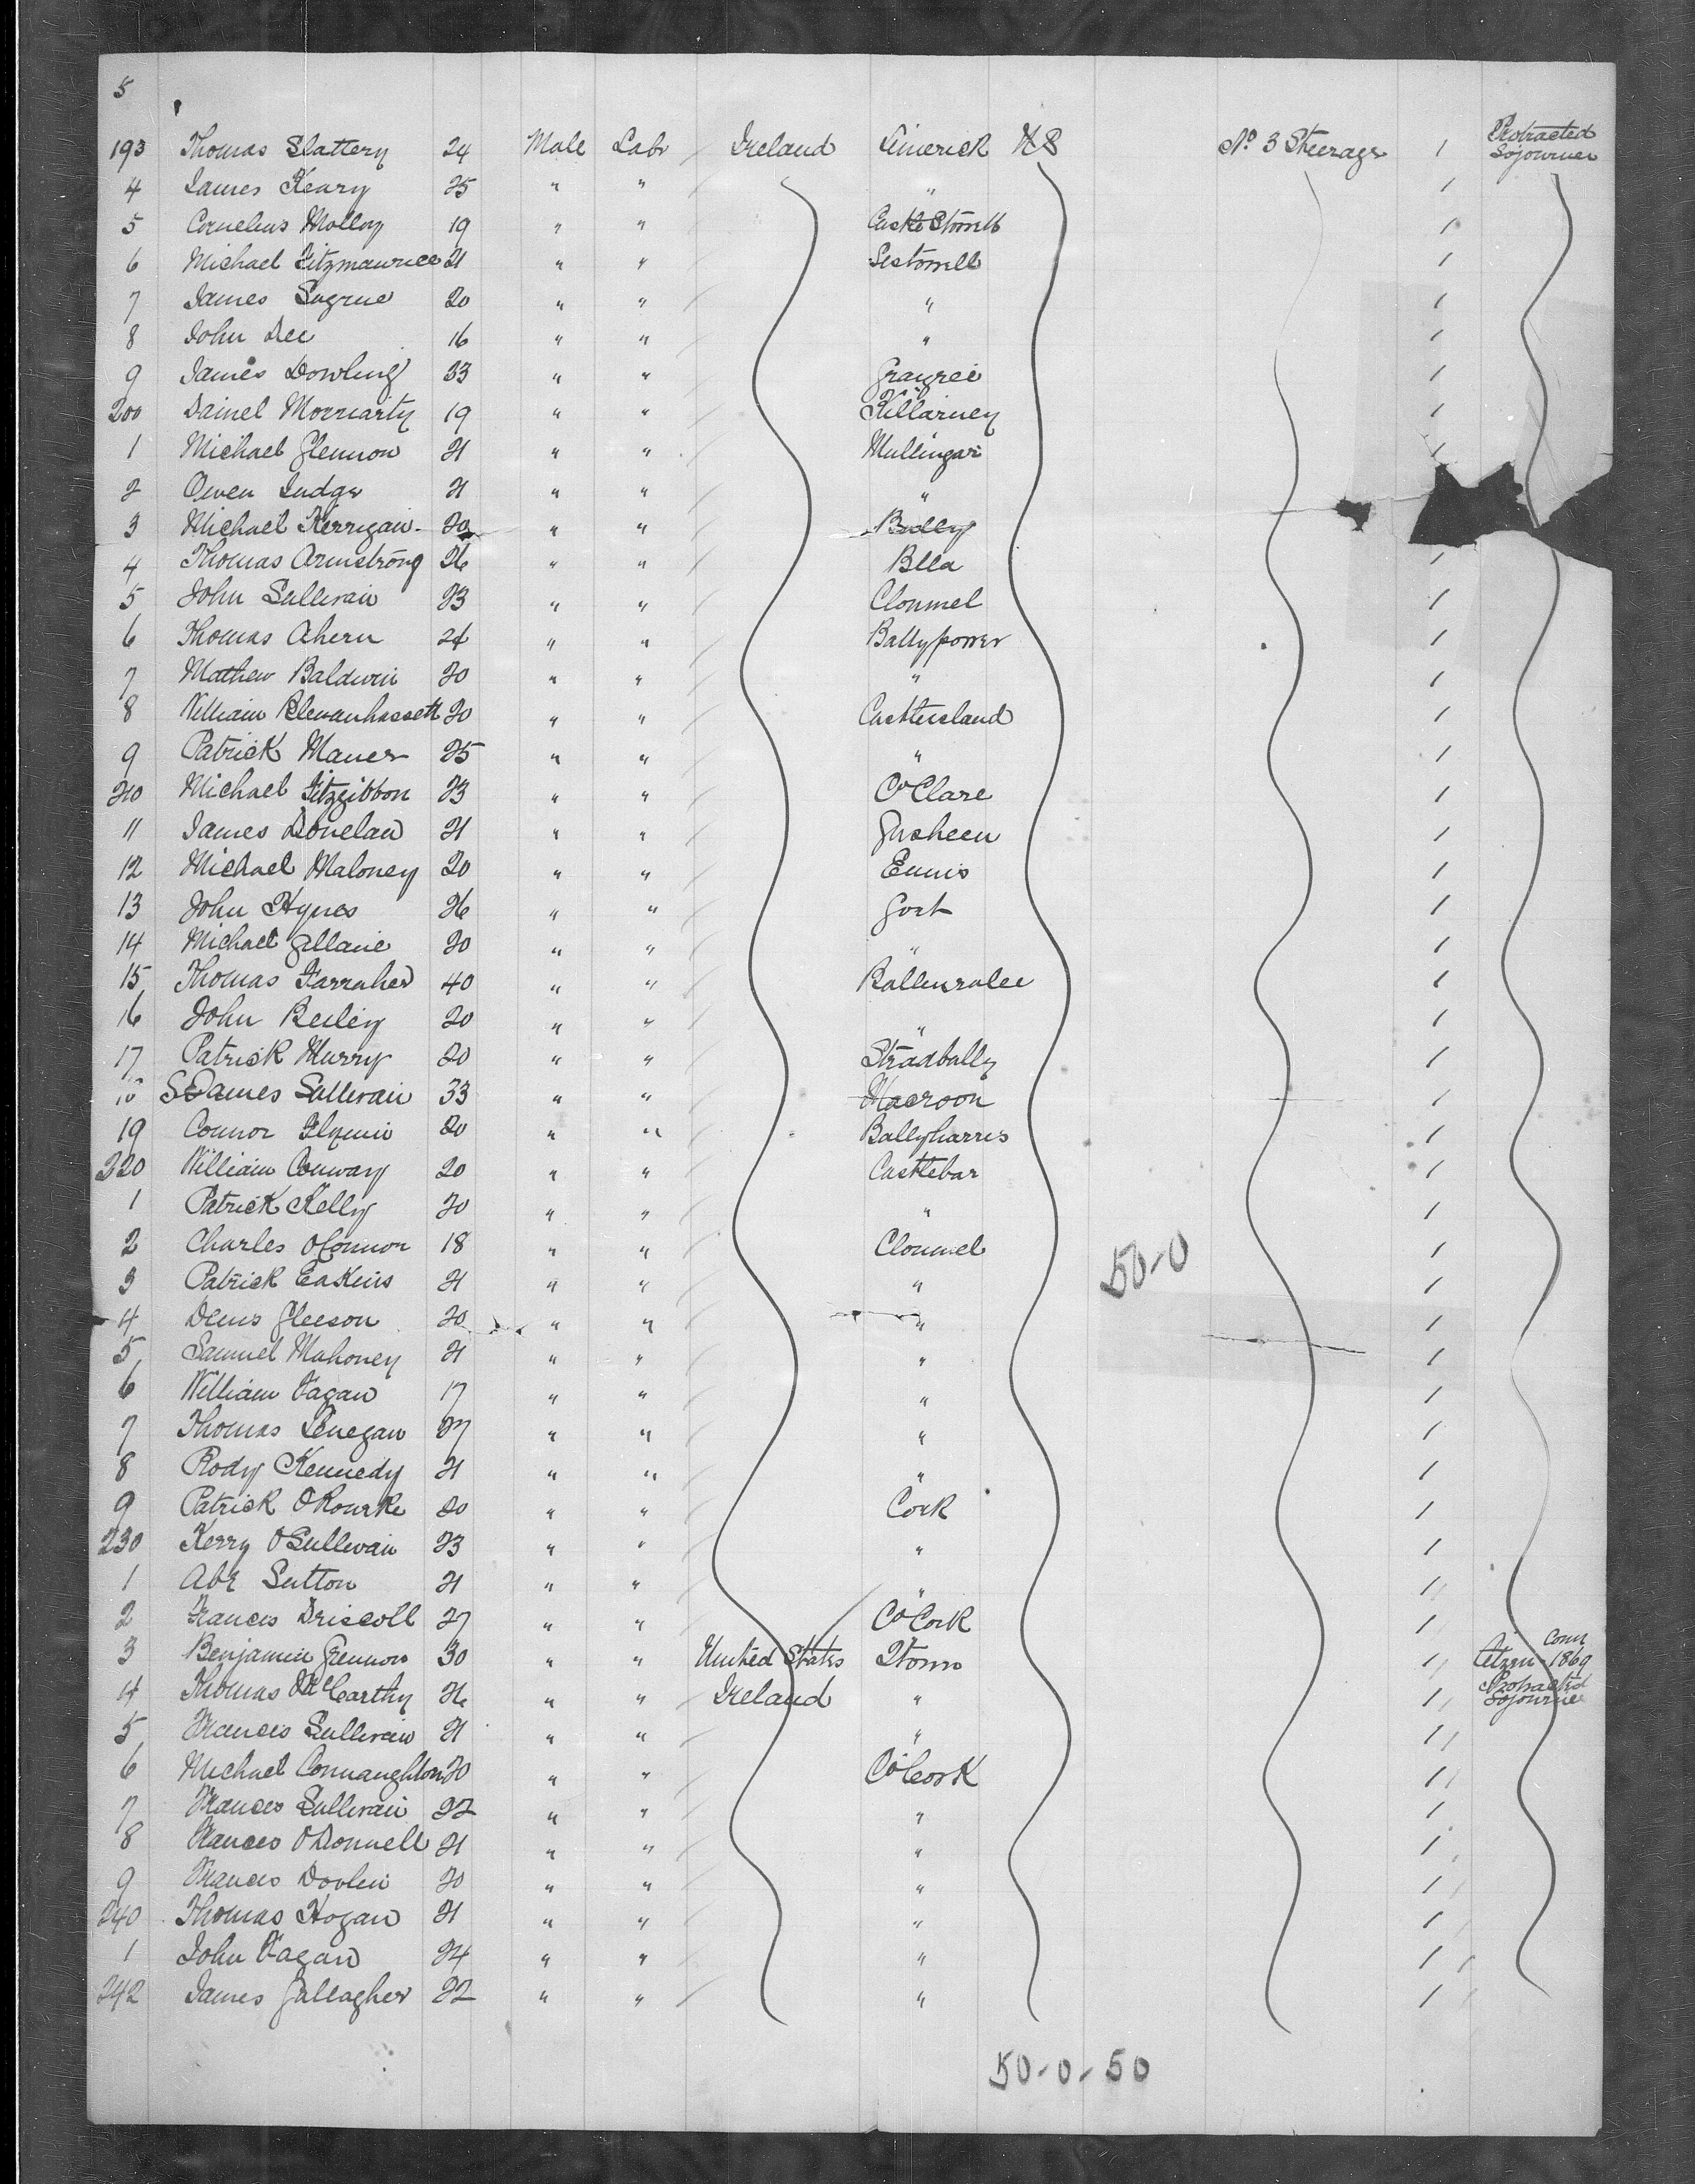 5
193 Thomas Slattery 24 Male Labr Ireland Limerick US No 3 Steerage 1 Protracted Sojourner
4 James Keary 25 " " " 1
5 Cornelius Molloy 19 " " 1
6 Michael Fitzmaurice 21 " " 1
7 James Sugrue 20 " " " 1
8 John Dee 16 " " " 1
9 James Dowling 33 " " 1
200 Dainel Morriarty 19 " " Killarney 1
1 Michael Glennon 21 " " Mullingar 1
2 Owen Judge 21 " " "
3 Michael Kerrigan 20 " "
4 Thomas Armstrong 26 " " Blla 1
5 John Sullivan 23 " " Clonmel 1
6 Thomas Ahern 24 " " Ballypower 1
7 Mathew Baldwin 20 " " " 1
8 William Blevanhassett 20 " " Castleisland 1
9 Patrick Maner 25 " " " 1
210 Michael Fitzgibbon 23 " " Co Clare 1
11 James Donelan 21 " " Gusheen 1
12 Michael Maloney 20 " " Ennis 1
13 John Hynes 26 " " Gort 1
14 Michael Gllane 20 " " " 1
15 Thomas Farraher 40 " " 1
16 John Beiley 20 " " " 1
17 Patrick Murry 20 " " Stradbally 1
James Sullivan 33 " " Macroon 1
19 Connor 20 " " Ballyharris 1
220 William Conway 20 " " Castlebar 1
1 Patrick Kelly 20 " " " 1
2 Charles OConnor 18 " " Clonmel 50-0 1
3 Patrick Eakins 21 " " " 1
4 Denis Gleeson 20 " " " 1
5 Samuel Mahoney 21 " " " 1
6 William Fagan 17 " " " 1
7 Thomas Lenegan 27 " " " 1
8 Rody Kennedy 21 " " " 1
9 Patrick ORourke 20 " " Cork 1
230 Kerry OSullivan 23 " " " 1
1 Abe Sutton 21 " " " 1
2 Frances Driscoll 27 " " Co Cork 1
3 Benjamin Grennon 30 " " United States 1 Conn Citzen 1869
4 Thomas McCarthy 26 " " Ireland " 1 Protracted Sojourner
5 Frances Sullivan 21 " " " 1
6 Michael Connaughton 20 " " Co Cork 1
7 Frances Sullivan 22 " " " 1
8 Frances ODonnell 21 " " " 1
9 Frances Dovlin 20 " " " 1
240 Thomas Hogan 21 " " " 1
1 John Fagan 24 " " " 1
242 James Gallagher 22 " " " 1
50-0-50